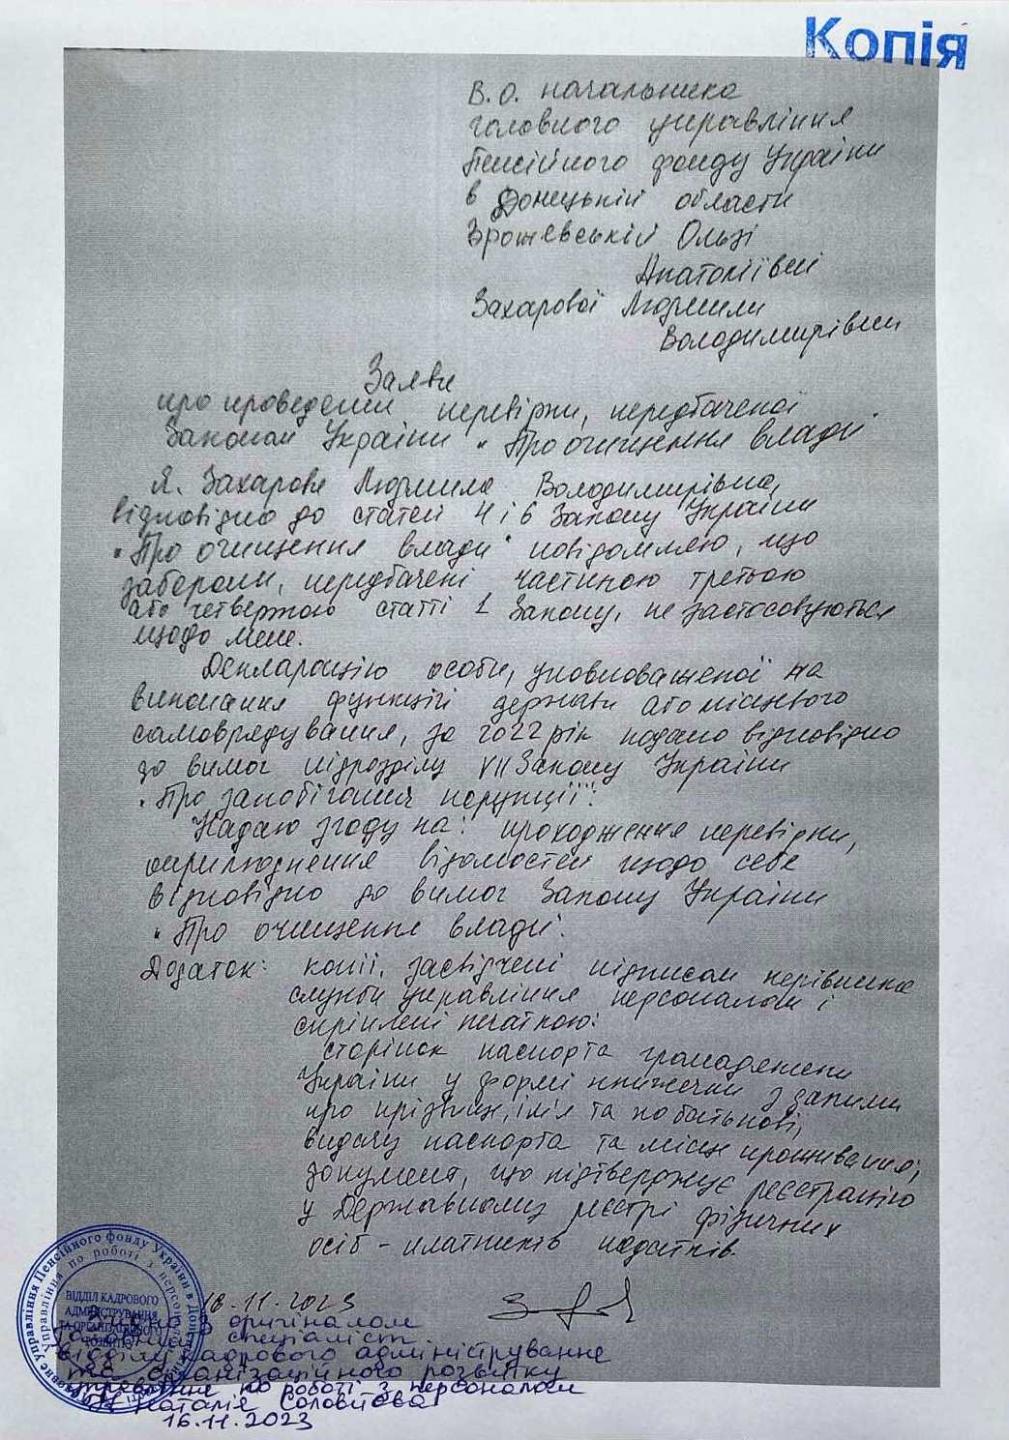 Копія
В.О. начальника
головного управління
Пенсійного фонду України
в Донецькій області
Зрожевській Ользі
Анатоліївні
Захарової Людмили
Володимирівни
Заява
про проведення перевірки, передбаченої
Законом України "Про очищення влади"
Я, Захарова Людмила Володимирівна,
відповідно до статей 4 і 6 Закону України
"Про очищення влади" повідомляю, що
заборони, передбачені частиною третьою
або четвертою статті 1 Закону, не застосовуються
щодо мене.
Декларацію особи, уповноваженої на
виконання функцій держави або місцевого
самоврядування, за 2022 рік подано відповідно
до вимог підрозділу VII Закону України
"Про запобігання корупції".
Надаю згоду на: проходження перевірки,
оприлюднення відомостей щодо себе
відповідно до вимог Закону України
"Про очищення влади".
Додаток: копії, засвідчені підписом керівника
служби управління персоналом і
скріплені печаткою:
сторінок паспорта громадянина
України у формі книжечки з даними
про прізвище, ім'я та по батькові,
видачу паспорта та місце проживання;
документа, що підтверджує реєстрацію
у Державному реєстрі фізичних
осіб - платників податків.
16.11.2023
Згідно з оригіналом
Головний спеціаліст
відділу кадрового адміністрування
та організаційного розвитку
управління по роботі з персоналом
Наталія Соловйова
16.11.2023
Головне управління Пенсійного фонду України в Донецькій
Управління по роботі з персоналом
ВІДДІЛ КАДРОВОГО
АДМІНІСТРУВАННЯ
ТА ОРГАНІЗАЦІЙНОГО
РОЗВИТКУ